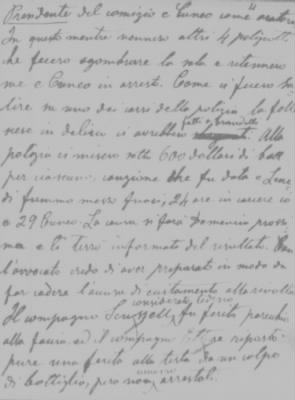 Presidente del comizio e Cuneo come oratore
In questo mentre vennero altri 4 poliziotti
che fecero sgombrare la sala e ritennero
me e Cuneo in arresto. Come ci fecero sa
lire su uno dei carri della polizia la folla
venne in delirio ci avrebbero fatto a brandelli. Alla
polizia ci misero sotto 600 dollari di bail
per ciascuno, cauzione che fu data e
di fummo messi fuori, 24 ore in carcere io
e 29 Cuneo. La causa si farà Domenica prossi
ma e ti terrò informato del resultato. Con
l'avvocato credo di aver preparato in modo da
far cadere l'accusa di eccitamento alla rivolta
considerato
Il compagno fu ferito parecchio
alla faccia ed il compagno riportò
pure una ferita alla testa da un colpo
di bottiglia, però non arrestati.